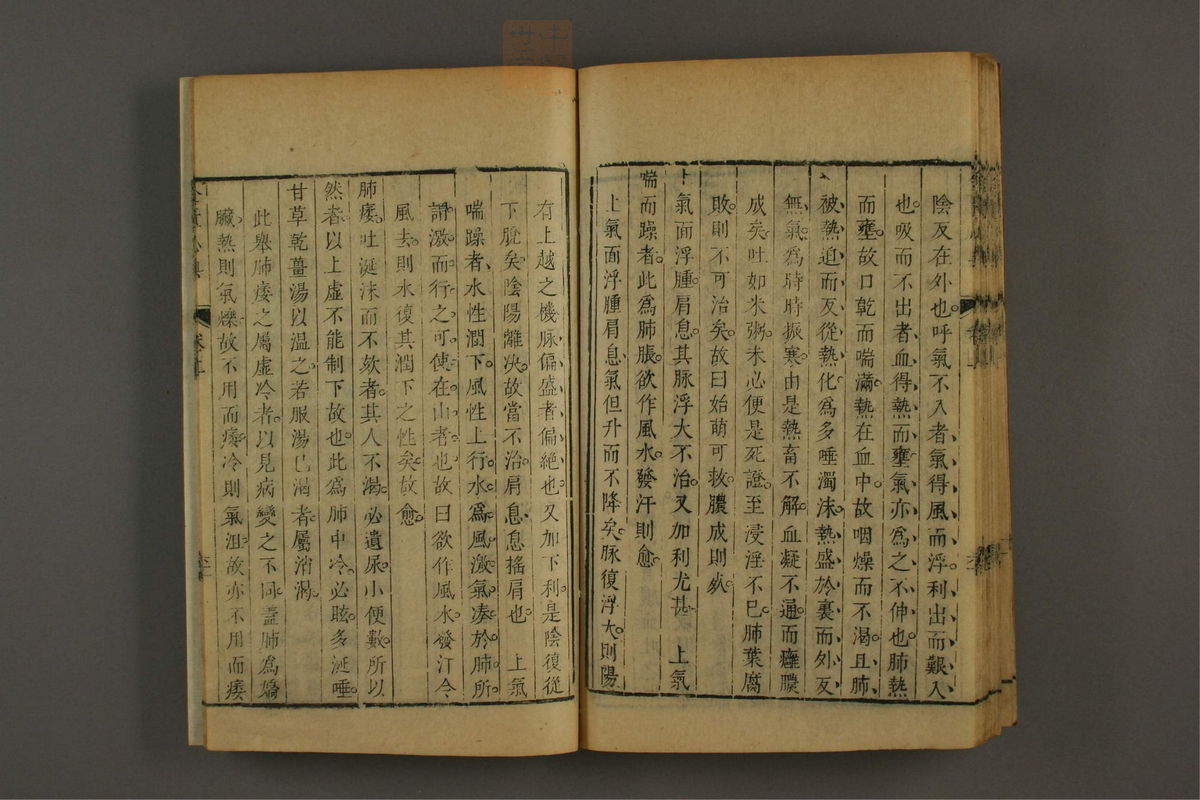 陰反在外也呼氣不入者氣得風而浮利出而艱入
也吸而不出者血得熱而壅氣亦為之不伸也肺熱
而壅故口乾而喘滿熱在血中故咽燥而不渴且肺
被熱迫而反從熱化為多唾濁沫熱盛於裏而外反
無氣為時時振寒由是熱畜不解血凝不通而癰膿
成矣吐如米粥未必便是死證至浸淫不已肺葉腐
敗則不可治矣故曰始萌可救膿成則死
上氣面浮腫肩息其脉浮大不治又加利尤甚 上氣
喘而躁者此為肺脹欲作風水發汗則愈
上氣面浮腫肩息氣但升而不降矣脉復浮大則陽
有上越之機脉偏盛者偏絕也又加下利是陰復從
下脫矣陰陽離决故當不治肩息息搖肩也 上氣
喘躁者水性潤下風性上行水為風激氣凑於肺所
謂激而行之可使在山者也故曰欲作風水發汗令
風去則水復其潤下之性矣故愈
肺痿吐涎沫而不欬者其人不渴必遺尿小便數所以
然者以上虛不能制下故也此為肺中冷必眩多涎唾
甘草乾薑湯以溫之若服湯已渴者屬消渴
此舉肺痿之屬虛冷者以見病變之不同葢肺為嬌
臟熱則氣爍故不用而痿冷則氣沮故亦不用而痿